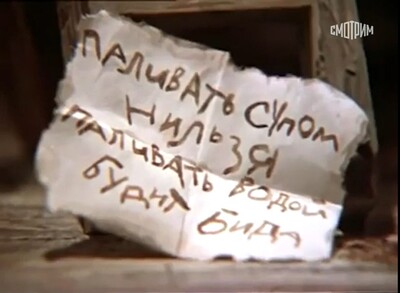 СМОТРИМ
ПАЛИВАТЬ СУПОМ
НИЛЬЗЯ
ПАЛИВАТЬ ВОДОЙ
БУДИТ БИДА